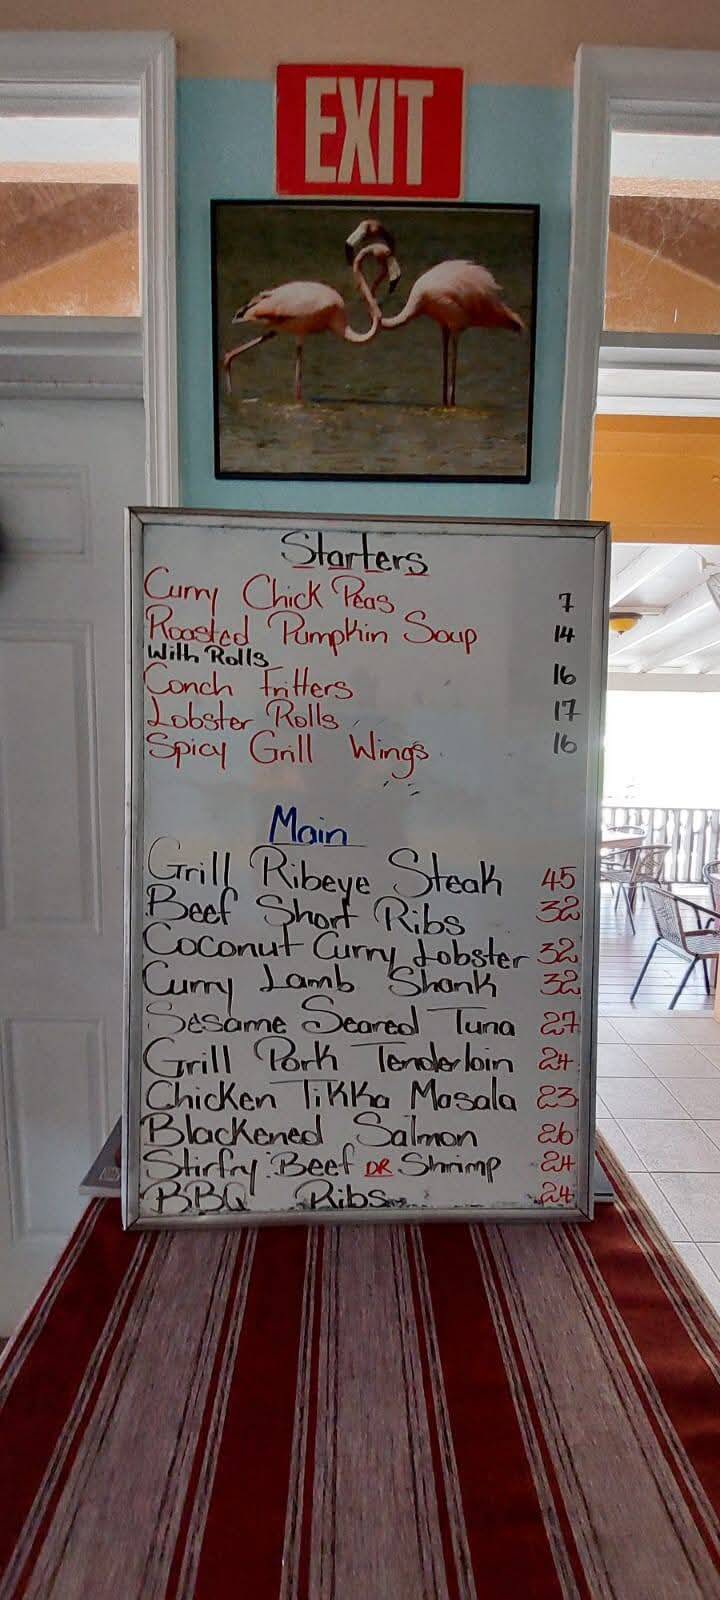 EXIT
Starters
Curry Chick Peas 7
Roasted Pumpkin Soup 14
With Rolls
Conch Fritters 16
Lobster Rolls 17
Spicy Grill Wings 16
Main
Grill Ribeye Steak 45
Beef Short Ribs 32
Coconut Curry Lobster 32
Curry Lamb Shank 32
Sesame Seared Tuna 27
Grill Pork Tenderloin 24
Chicken Tikka Masala 23
Blackened Salmon 26
Stirfry: Beef OR Shrimp 24
BBQ Ribs 24